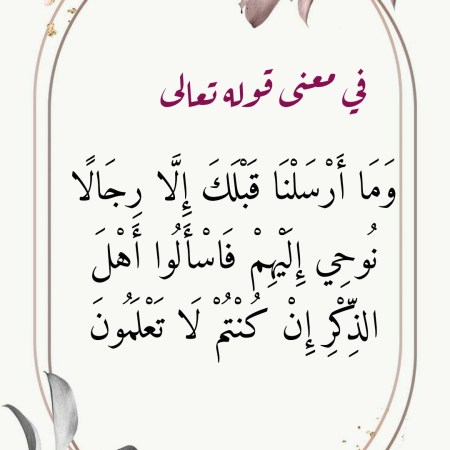 في معنى قوله تعالى
وَمَا أَرْسَلْنَا قَبْلَكَ إِلَّا رِجَالًا
نُوحِي إِلَيْهِمْ فَاسْأَلُوا أَهْلَ
الذِّكْرِ إِنْ كُنْتُمْ لَا تَعْلَمُونَ